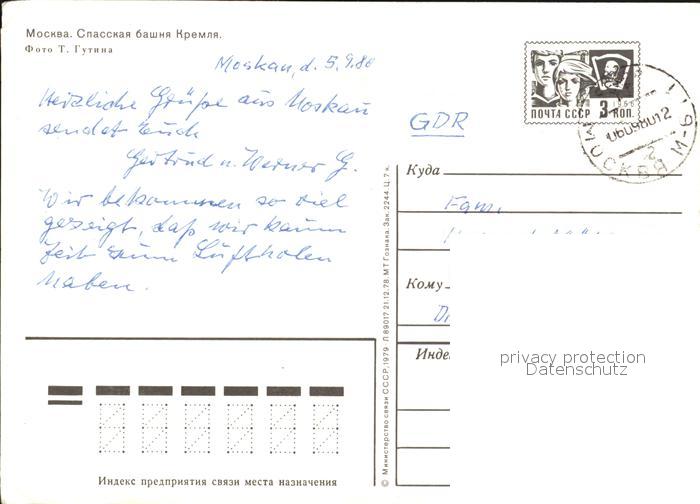 Москва. Спасская башня Кремля.
Фото Т. Гутина
Moskau, d. 5.9.80
Herzliche Grüße aus Moskau
sendet Euch
Gertrud u. Werner G.
Wir bekommen so viel
gezeigt, daß wir kaum
Zeit zum Luftholen
haben.
GDR
ПОЧТА СССР 3 КОП.
1966
06098012
МОСКВА
Куда
Fam.
Кому
Инде
privacy protection
Datenschutz
Индекс предприятия связи места назначения
© Министерство связи СССР, 1979. Л 89017 21.12.78. МТ Гознака. Зак. 2244. Ц. 7 к.